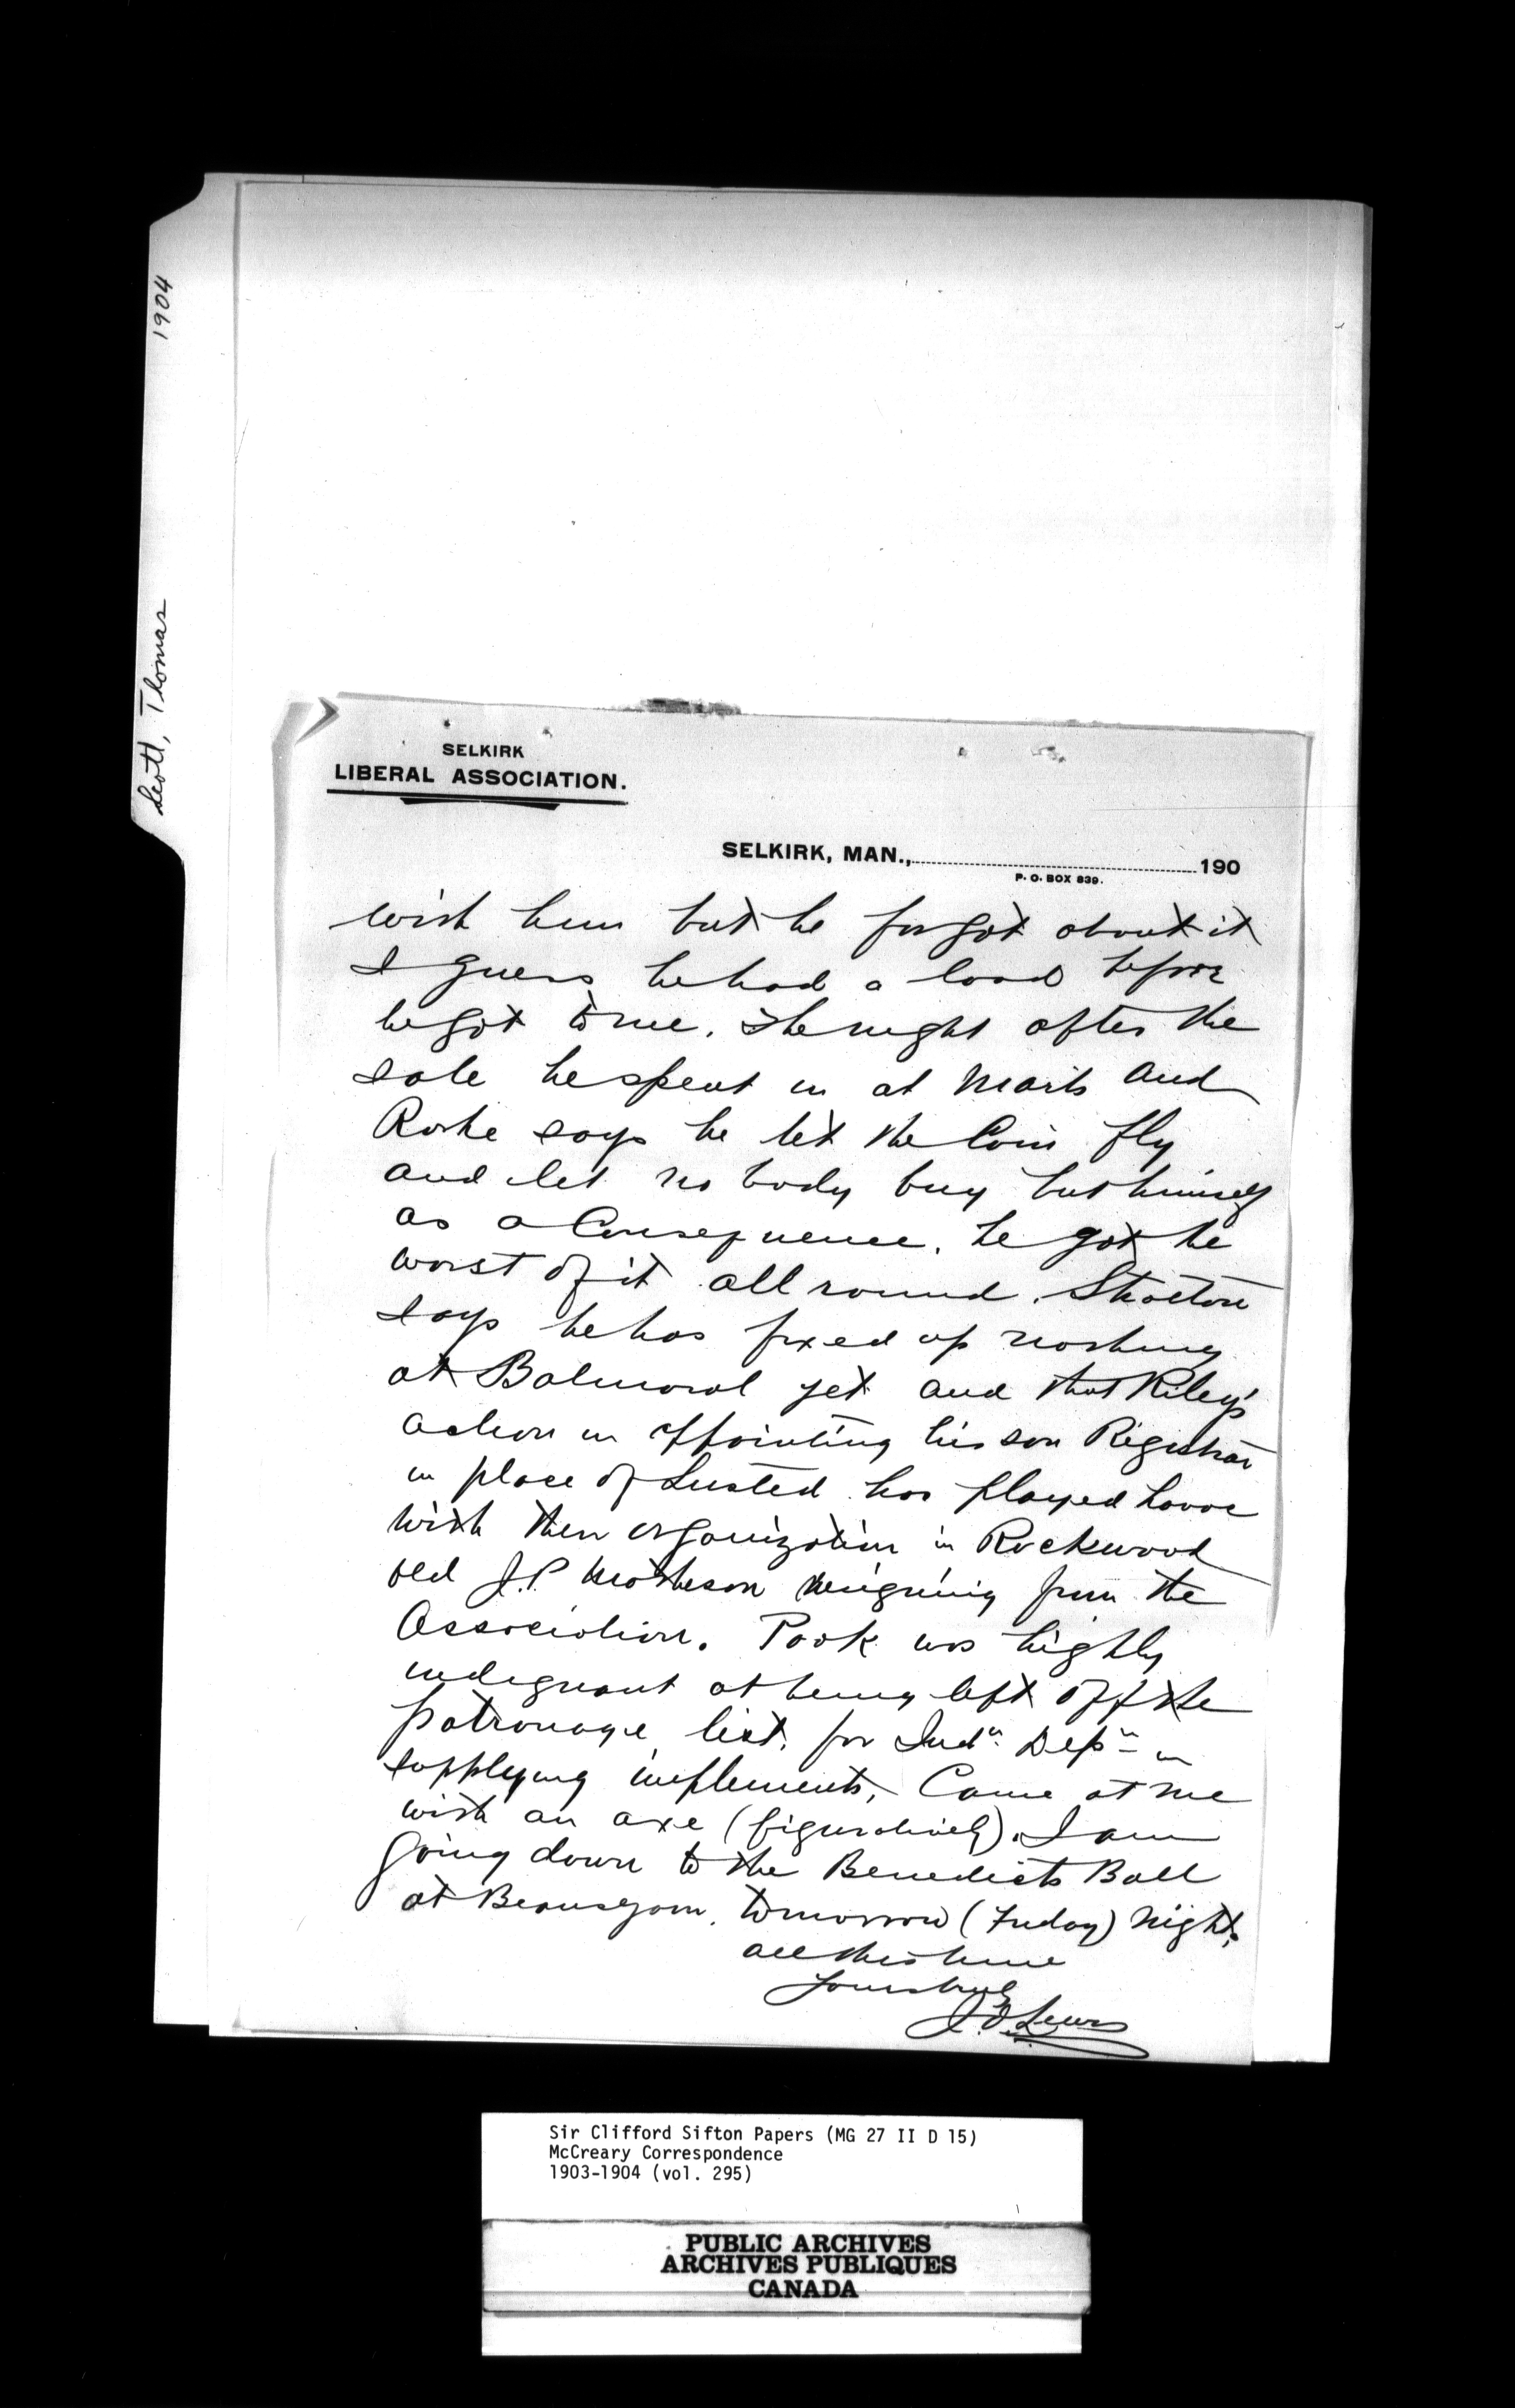 1904
Scott, Thomas
SELKIRK
LIBERAL ASSOCIATION.
SELKIRK, MAN., 190
P. O. BOX 839.
with him but he forgot about it
I guess he had a load before
he got to me. The night after the
sale he spent in at and
Roche says he let the Coin fly
and let no body buy but himself
as a Consequence. he got the
worst of it all round.
says he has fixed up nothing
at Balmoral yet and that Riley's
action in appointing his son Registrar
in place of Lusted has played havoc
with their organization in Rockwood
old J.P. Matheson resigning from the
Association. Pook was highly
indignant at being left off the
patronage list, for Indn Depn in
supplying implements, Came at me
with an axe (figuratively). I am
going down to the Benedicts Ball
at Beausejour, tomorrow (Friday) night.
all this time
Yours truly
J.O. Lewis
Sir Clifford Sifton Papers (MG 27 II D 15)
McCreary Correspondence
1903-1904 (vol. 295)
PUBLIC ARCHIVES
ARCHIVES PUBLIQUES
CANADA